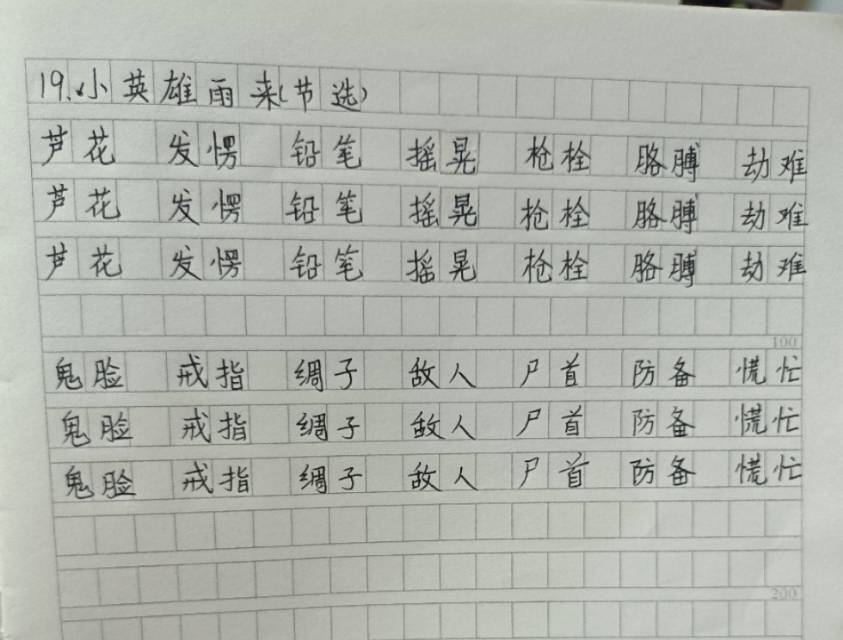 19.小英雄雨来(节选)
芦花 发愣 铅笔 摇晃 枪栓 胳膊 劫难
芦花 发愣 铅笔 摇晃 枪栓 胳膊 劫难
芦花 发愣 铅笔 摇晃 枪栓 胳膊 劫难
100
鬼脸 戒指 绸子 敌人 尸首 防备 慌忙
鬼脸 戒指 绸子 敌人 尸首 防备 慌忙
鬼脸 戒指 绸子 敌人 尸首 防备 慌忙
200